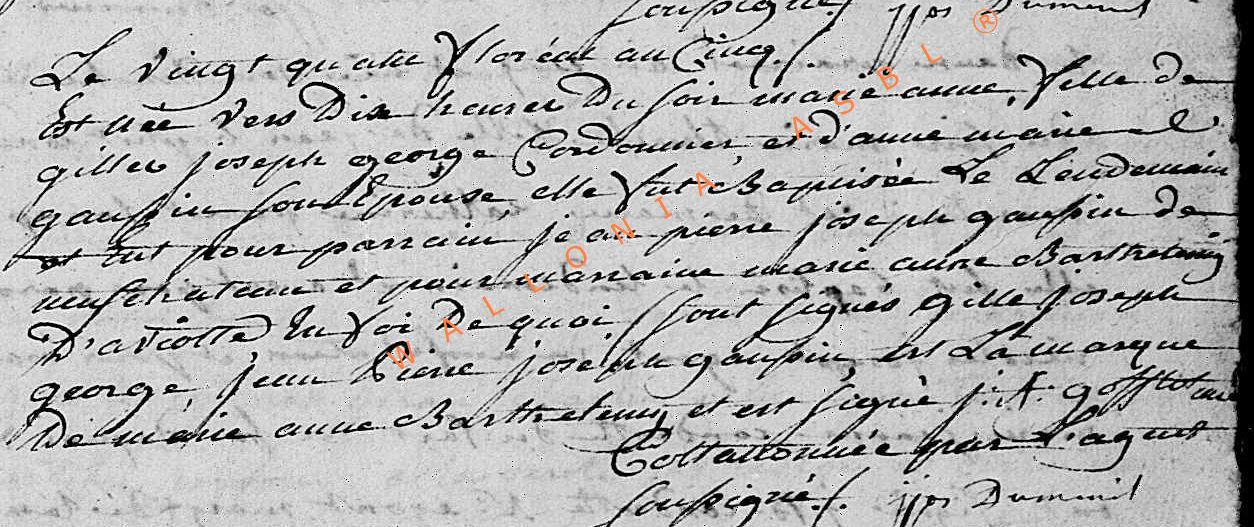 soussigné./. jjos Dumenil
Le vingt quatre floréal an Cinq./.
Est née vers Dix heures Du soir marie anne, fille de
gilles joseph george Cordonnier et d'anne marie
gaussin son Epouse elle fut Baptisée Le Lendemain
et eut pour parrain jean pierre joseph gaussin de
neufchateau et pour marraine marie anne Barthelemy
D'aviotte En foi De quoi sont signés gille joseph
george, jean Pierre joseph gaussin est La marque
De marie anne Barthelemy et est signé j: A: gofflot curé
Collationnée par L'agent
soussigné./. jjos Dumenil
WALLONIA ASBL ®